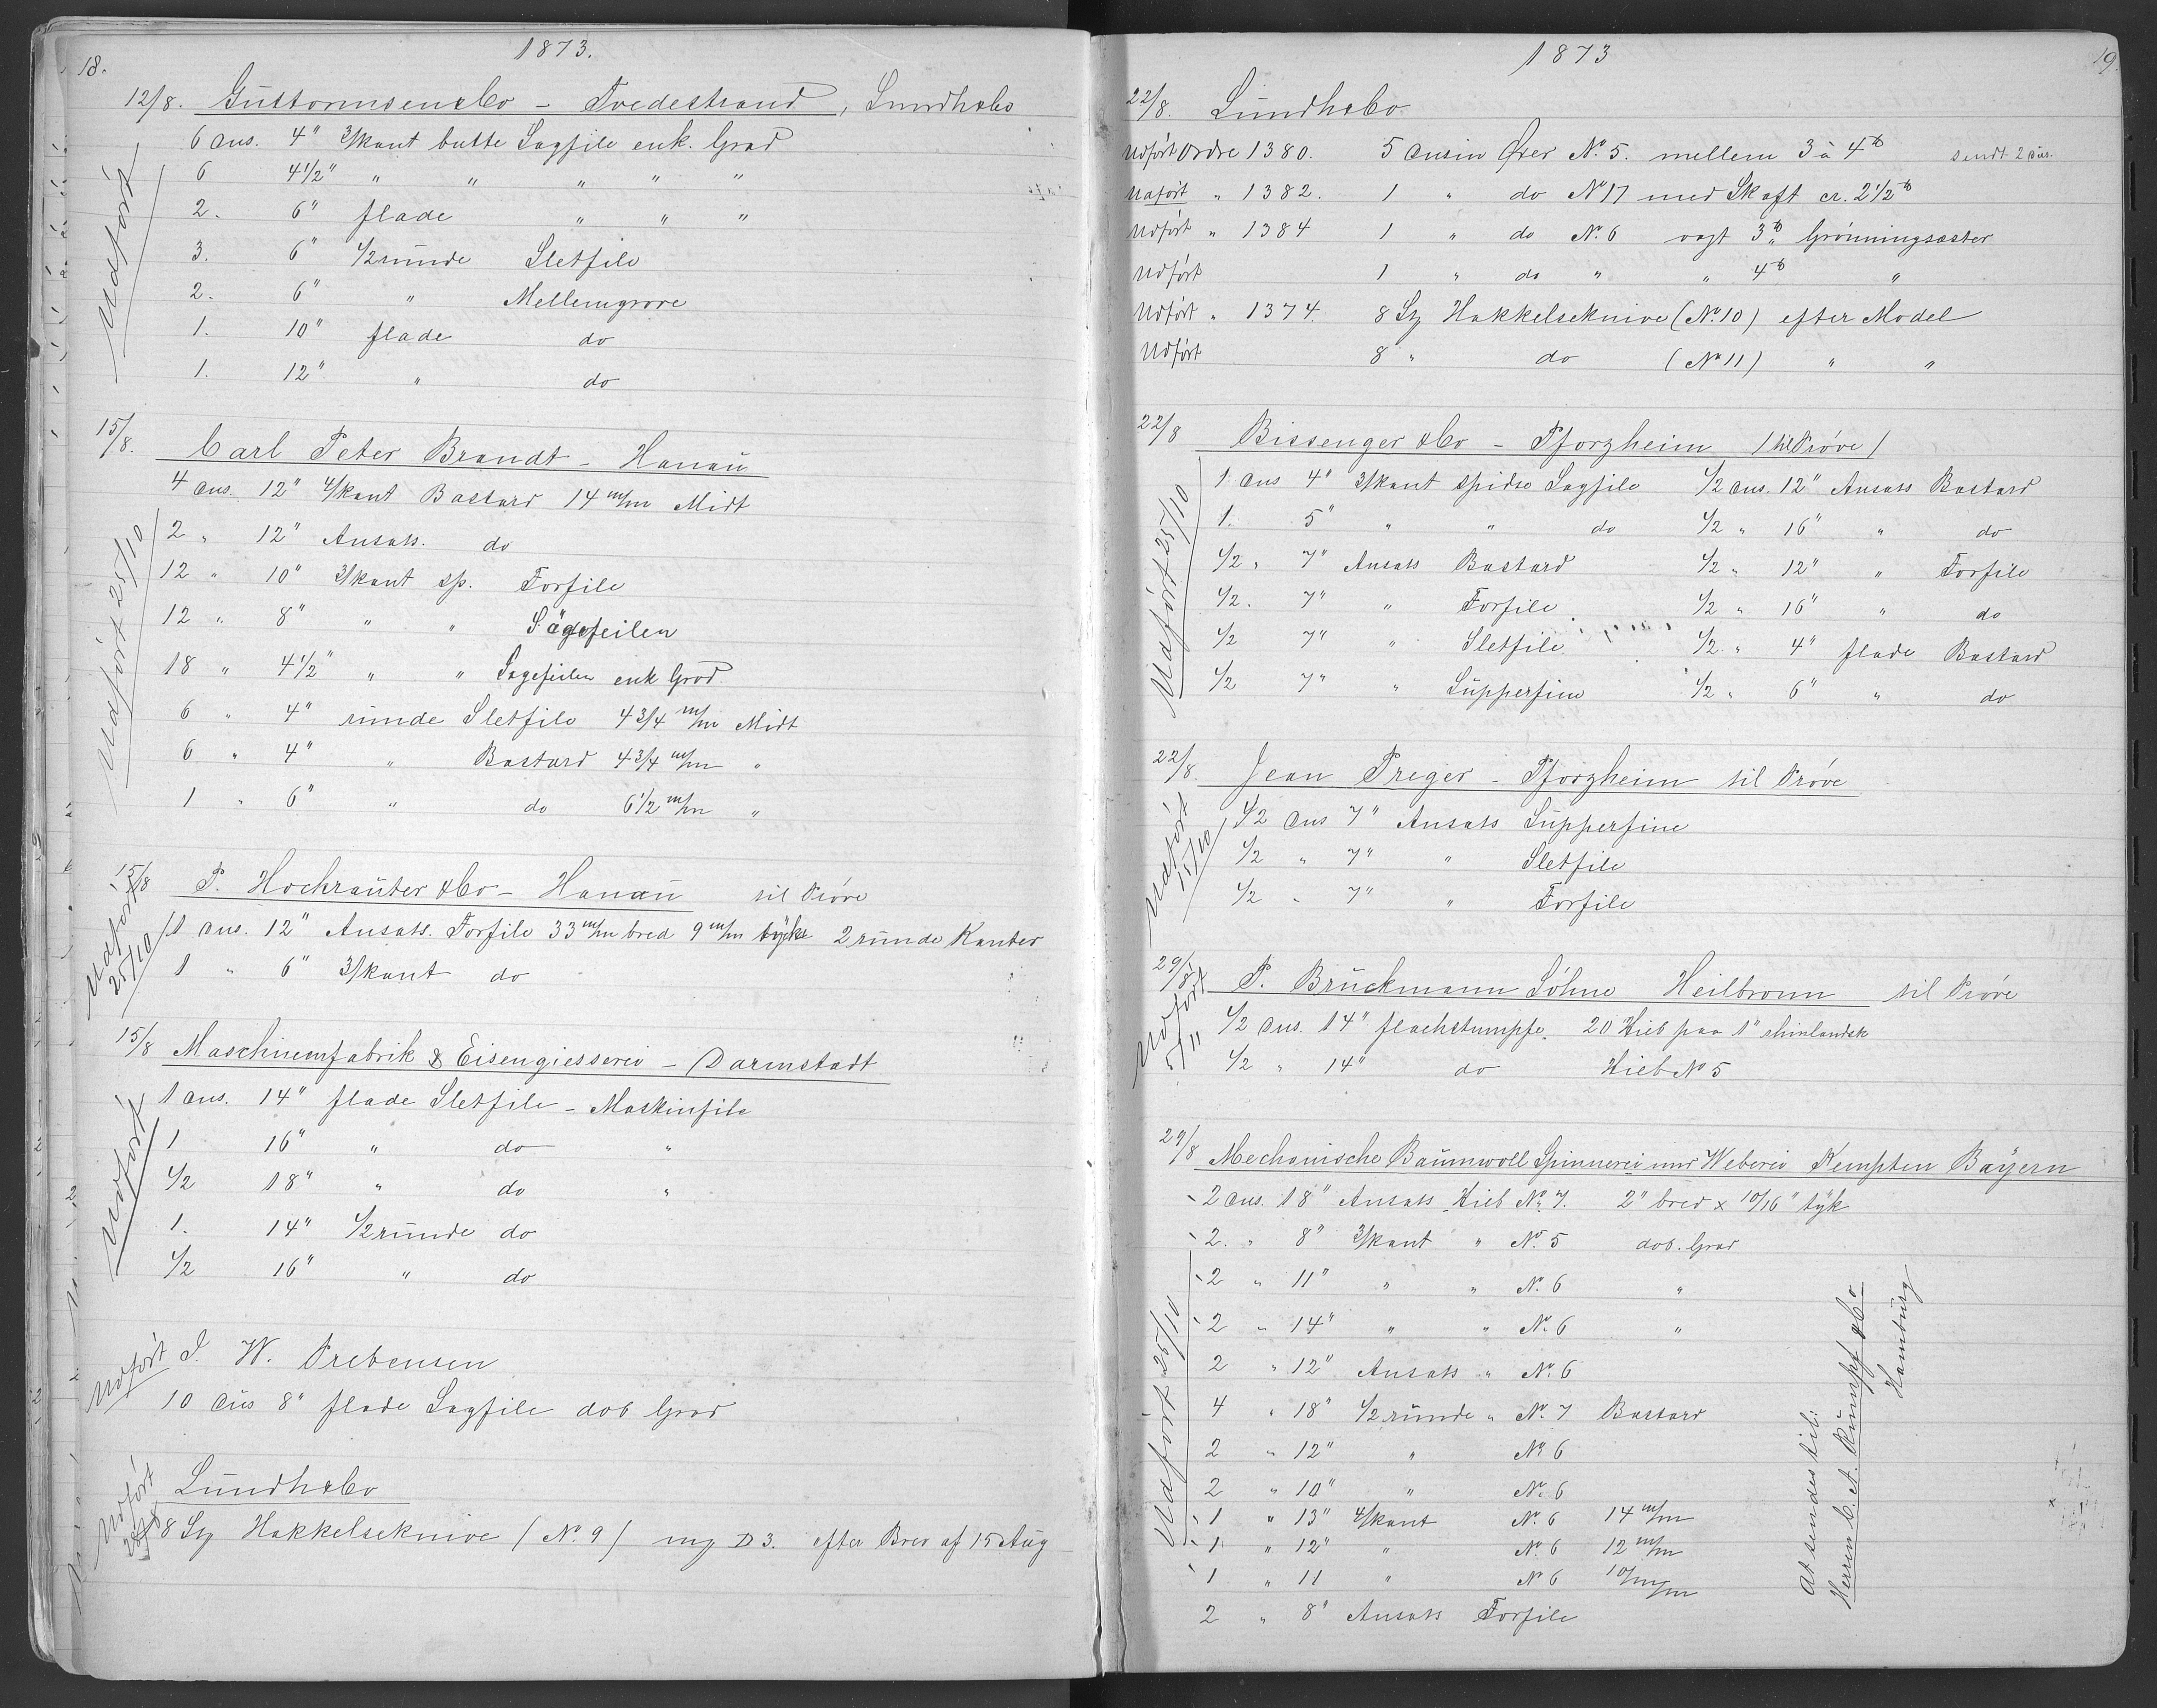 18.
1873.
12/8. Guttormsen & Co - Tvedestrand, Lundh & Co
Udført
6 Dus. 4" 3/kant butte Sagfile enk. Grad
6 4 1/2" " " " " "
2. 6" flade " " "
3. 6" 1/2 runde Sletfile
2. 6" " Mellemgrove
1. 10" flade do
1. 12" " do
15/8. Carl Peter Brandt - Hanau
Udført 25/10
4 Dus. 12" 4/kant Bastard 14 m/m Midt
2 " 12" Ansats. do
12 " 10" 3/kant sp. Forfile
12 " 8" " " Sägefeilen
18 " 4 1/2" " " Sagefeilen enk Grad
6 " 4" runde Sletfile 4 3/4 m/m Midt
6 " 4" " Bastard 4 3/4 m/m "
1 " 6" " do 6 1/2 m/m "
15/8 P. Hochrauter & Co - Hanau til Prøve
Udført 25/10
1 Dus. 12" Ansats. Forfile 33 m/m bred 9 m/m tykk 2 runde Kanter
1 " 6" 3/kant do
15/8 Maschinenfabrik & Eisengiesserei - Darmstadt
Udført
1 Dus. 14" flade Sletfile - Maskinfile
1 16" " do "
1/2 18" " do "
1. 14" 1/2 runde do
1/2 16" " do
Udført J. W. Prebensen
10 Dus 8" flade Sagfile dob Grad
Udført Lundh & Co
8 Sz Hakkelseknive (No. 9) mg D 3. efter Brev af 15 Aug
1873
19.
22/8. Lundh & Co
Udført Ordre 1380. 5 Dusin Øxer No. 5. mellem 3 à 4 lb sendt 2 Dus.
Udført " 1382. 1 " do No 17 med Skaft cr. 2 1/2 lb
Udført " 1384 1 " do No. 6 vægt 3 lb Grønningsaster
Udført 1 " do " " 4 lb "
Udført " 1374. 8 Sz Hakkelseknive (No. 10) efter Model
Udført 8 " do (No 11) " "
22/8 Bissenger & Co - Pforzheim (til Prøve)
Udført 25/10
1 Dus 4" 3/kant spidse Sagfile 1/2 Dus. 12" Ansats Bastard
1. 5" " " do 1/2 " 16" " do
1/2 " 7" Ansats Bastard 1/2 " 12" " Forfile
1/2 . 7" " Forfile 1/2 " 16" " do
1/2 7" " Sletfile 1/2 " 4" flade Bastard
1/2 7" " Supperfine 1/2 " 6" " do
22/8. Jean Preger - Pforzheim til Prøve
Udført 15/10
1/2 Dus 7" Ansats Supperfine
1/2 " 7" " Sletfile
1/2 " 7" " Forfile
29/8 P. Bruckmann Söhne Heilbronn til Prøve
Udført 5/11
1/2 Dus. 14" flachstumpfe. 20 Hieb paa 1" rhinlandsk
1/2 " 14" do Hieb No 5
29/8 Mechanische Baumwoll Spinnerei und Weberei Kempten Bayern
Udført 25/10
2 Dus. 18" Ansats Hieb No. 7. 2" bred x 10/16" tyk
2. " 8" 3/kant " No. 5 dob. Grad
2 " 11" " " No. 6 "
2 " 14" " " No. 6 "
2 " 12" Ansats " No. 6
4 " 18" 1/2 runde " No. 7 Bastard
2 " 12" " No 6
2 " 10" " No. 6
1 " 13" 4/kant No. 6 14 m/m
1 " 12" " No. 6 12 m/m
1 " 11 " No 6 10 m/m
2 " 8" Ansats Forfile
At sendes til:
Herren C. A. Rumpf & Co
Hamburg